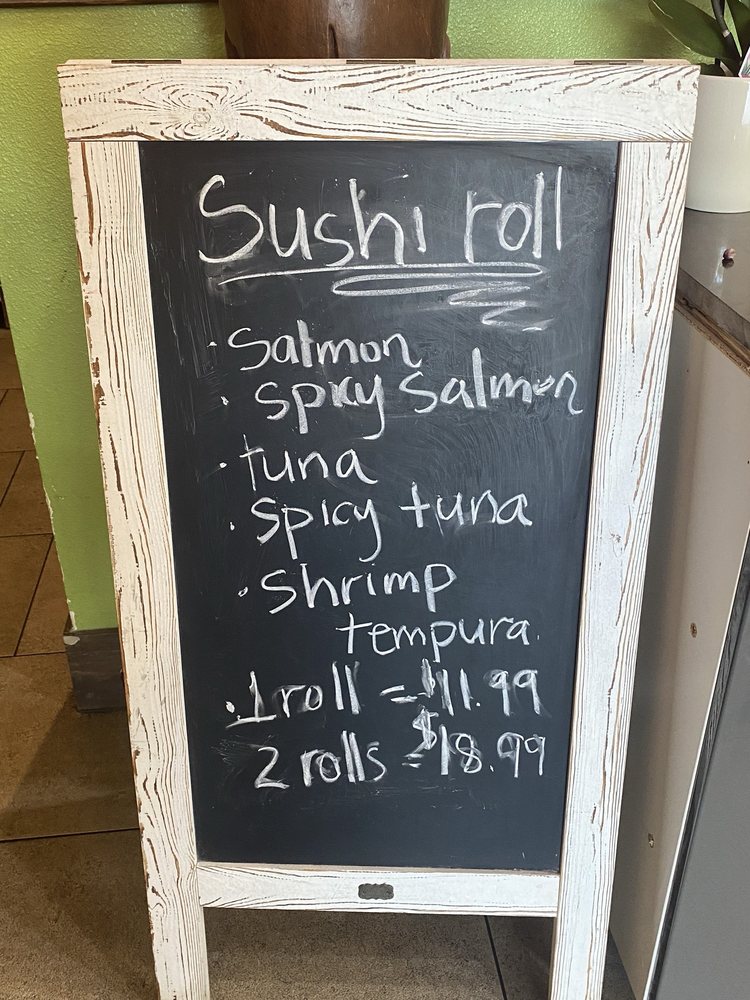 Sushi roll
· Salmon
· spicy salmon
· tuna
· spicy tuna
· shrimp
tempura.
· 1 roll = $11.99
2 rolls = $18.99